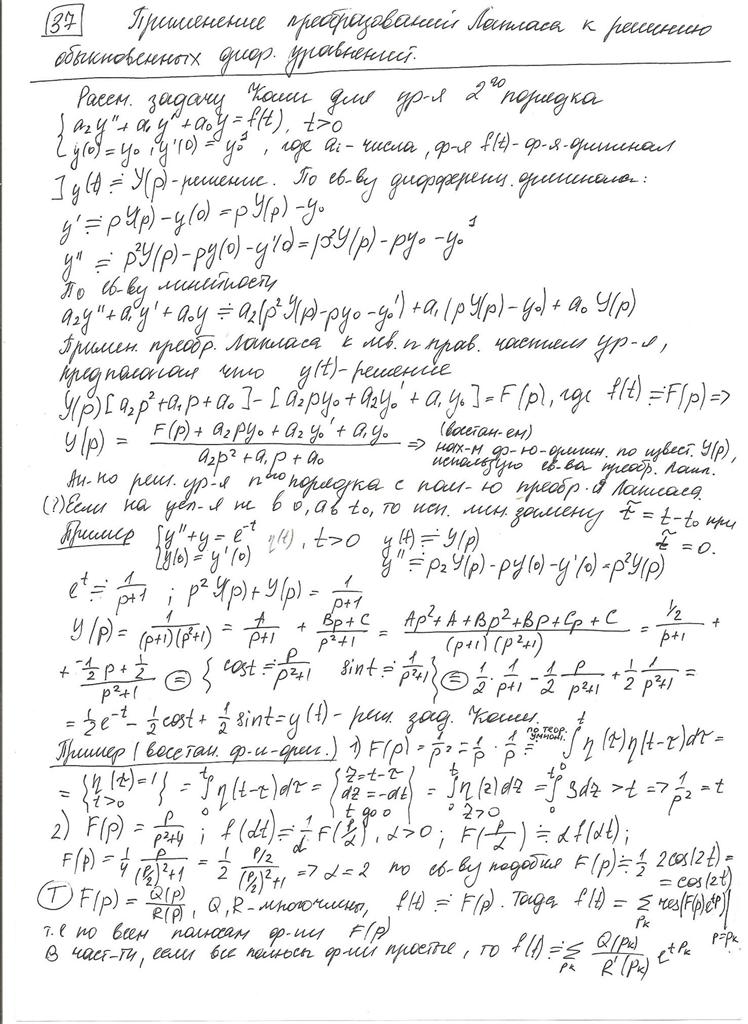 37 Применение преобразований Лапласа к решению
обыкновенных диф. уравнений.
Рассм. задачу Коши для ур-я 2го порядка
{ a₂y'' + a₁y' + a₀y = f(t), t>0
{ y(0) = y₀, y'(0) = y₀¹, где aᵢ - числа, ф-я f(t) - ф-я-оригинал
] y(t) ≓ Y(p) - решение. По св-ву дифференц. оригинала:
y' ≓ pY(p) - y(0) = pY(p) - y₀
y'' ≓ p²Y(p) - py(0) - y'(0) = p²Y(p) - py₀ - y₀¹
По св-ву линейности
a₂y'' + a₁y' + a₀y ≓ a₂(p²Y(p) - py₀ - y₀') + a₁(pY(p) - y₀) + a₀Y(p)
Примен. преобр. Лапласа к лев. и прав. частям ур-я,
предполагая что y(t) - решение
Y(p)[a₂p² + a₁p + a₀] - [a₂py₀ + a₂y₀' + a₁y₀] = F(p), где f(t) ≓ F(p) =>
Y(p) = (F(p) + a₂py₀ + a₂y₀' + a₁y₀)/(a₂p² + a₁p + a₀) => (восстан-ем) нах-м ф-ю-оригин. по извест. Y(p), использую св-ва преобр. Лапл.
Ан-но реш. ур-я nого порядка с пом-ю преобр-я Лапласа.
(?) Если на усл-я не в 0, а в t₀, то исп. лин. замену t̃ = t - t₀ при
t̃ = 0.
Пример { y'' + y = e⁻ᵗ η(t), t>0 y(t) ≓ Y(p)
{ y(0) = y'(0) y'' ≓ p₂Y(p) - py(0) - y'(0) = p²Y(p)
eᵗ ≓ 1/(p+1) ; p²Y(p) + Y(p) = 1/(p+1)
Y(p) = 1/((p+1)(p²+1)) = A/(p+1) + (Bp+C)/(p²+1) = (Ap²+A+Bp²+Bp+Cp+C)/((p+1)(p²+1)) = (1/2)/(p+1) +
+ (-1/2 p + 1/2)/(p²+1) (=) { cost ≓ p/(p²+1) sint ≓ 1/(p²+1) } (=) 1/2 · 1/(p+1) - 1/2 p/(p²+1) + 1/2 1/(p²+1) =
= 1/2 e⁻ᵗ - 1/2 cost + 1/2 sint = y(t) - реш. зад. Коши.
Пример (восстан. ф-и-ориг.) 1) F(p) = 1/p² = 1/p · 1/p ≓ по теор. умнож. ∫₀ᵗ η(τ)η(t-τ)dτ =
= { η(τ) = 1 t>0 } = ∫₀ᵗ η(t-τ)dτ = { z = t-τ dz = -dτ t до 0 } = ∫₀ᵗ η(z)dz z>0 = ∫₀ᵗ 3dz > t => 1/p² = t
2) F(p) = p/(p²+4) ; f(αt) ≓ 1/α F(p/α), α>0 ; F(p/α) ≓ αf(αt) ;
F(p) = 1/4 p/((p/2)²+1) = 1/2 (p/2)/((p/2)²+1) => α = 2 по св-ву подобия F(p) ≓ 1/2 2cos(2t) =
= cos(2t)
(T) F(p) = Q(p)/R(p), Q, R - многочлены, f(t) ≓ F(p). Тогда f(t) = Σ_pₖ res(F(p)eᵗᵖ)|p=pₖ
т.е по всем полюсам ф-ии F(p)
В част-ти, если все полюсы ф-ии простые, то f(t) ≓ Σ_pₖ Q(pₖ)/R'(pₖ) e^(tpₖ)